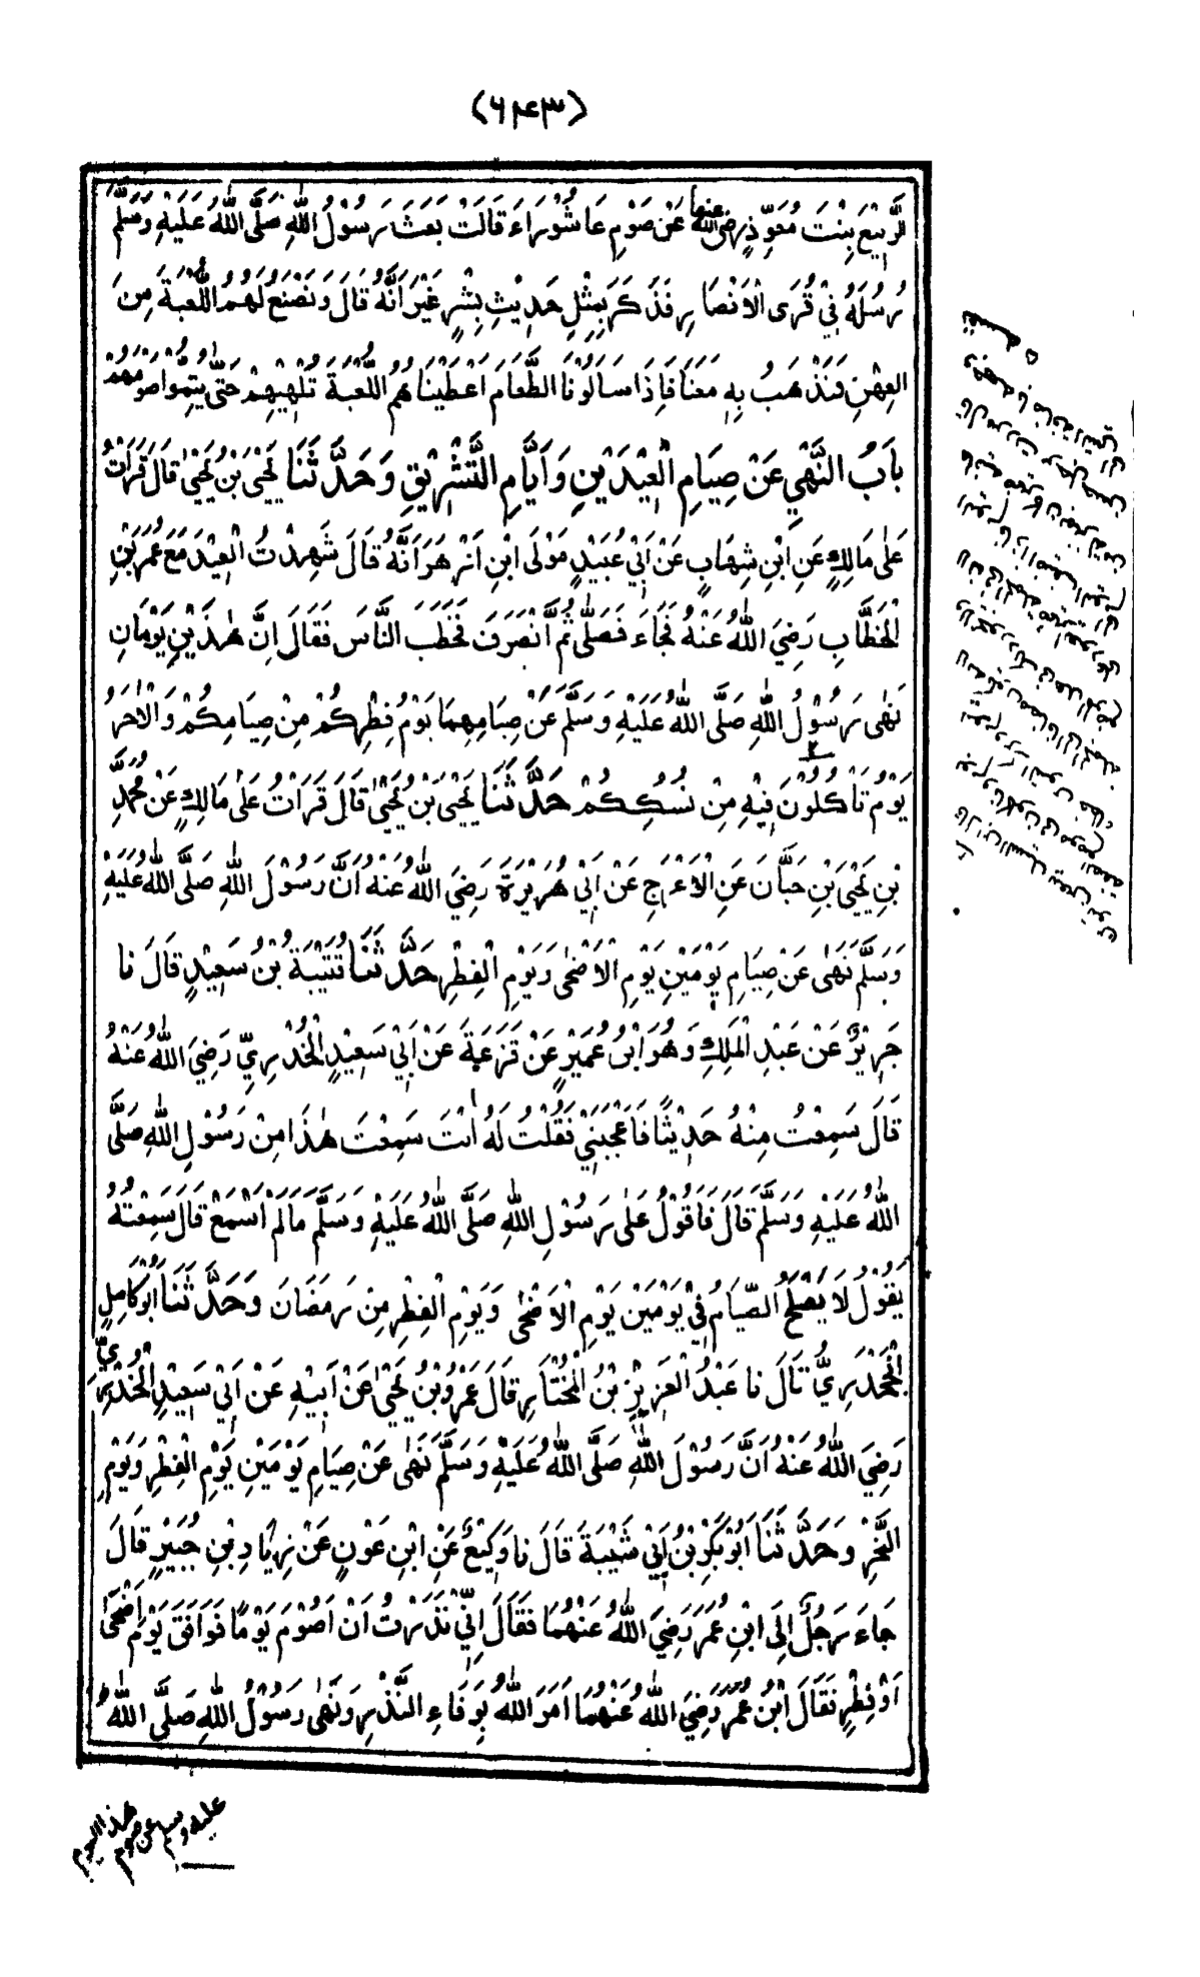 (٦٤٣)
الرُّبَيِّعَ بِنْتَ مُعَوِّذٍ رضي الله عنها عَنْ صَوْمِ عَاشُوْرَاءَ قَالَتْ بَعَثَ رَسُوْلُ اللهِ صَلَّى اللهُ عَلَيْهِ وَسَلَّمَ
رُسُلَهُ فِيْ قُرَى الْاَنْصَارِ فَذَكَرَ بِمِثْلِ حَدِيْثِ بِشْرٍ غَيْرَ اَنَّهُ قَالَ وَنَصْنَعُ لَهُمُ اللُّعْبَةَ مِنَ
العِهْنِ فَنَذْهَبُ بِهِ مَعَنَا فَاِذَا سَاَلُوْنَا الطَّعَامَ اَعْطَيْنَاهُمُ اللُّعْبَةَ تُلْهِيْهِمْ حَتّٰى يُتِمُّوا صَوْمَهُمْ
بَابُ النَّهْيِ عَنْ صِيَامِ الْعِيْدَيْنِ وَاَيَّامِ التَّشْرِيْقِ وَحَدَّثَنَا يَحْيَى بْنُ يَحْيٰى قَالَ قَرَاْتُ
عَلٰى مَالِكٍ عَنِ ابْنِ شِهَابٍ عَنْ اَبِيْ عُبَيْدٍ مَوْلَى ابْنِ اَزْهَرَ اَنَّهُ قَالَ شَهِدْتُ الْعِيْدَ مَعَ عُمَرَ بْنِ
الْخَطَّابِ رَضِيَ اللهُ عَنْهُ فَجَاءَ فَصَلّٰى ثُمَّ انْصَرَفَ فَخَطَبَ النَّاسَ فَقَالَ اِنَّ هٰذَيْنِ يَوْمَانِ
نَهٰى رَسُوْلُ اللهِ صَلَّى اللهُ عَلَيْهِ وَسَلَّمَ عَنْ صِيَامِهِمَا يَوْمُ فِطْرِكُمْ مِنْ صِيَامِكُمْ وَالْاٰخَرُ
يَوْمٌ تَاْكُلُوْنَ فِيْهِ مِنْ نُسُكِكُمْ حَدَّثَنَا يَحْيَى بْنُ يَحْيٰى قَالَ قَرَاْتُ عَلٰى مَالِكٍ عَنْ مُحَمَّدِ
بْنِ يَحْيَى بْنِ حَبَّانَ عَنِ الْاَعْرَجِ عَنْ اَبِيْ هُرَيْرَةَ رَضِيَ اللهُ عَنْهُ اَنَّ رَسُوْلَ اللهِ صَلَّى اللهُ عَلَيْهِ
وَسَلَّمَ نَهٰى عَنْ صِيَامِ يَوْمَيْنِ يَوْمِ الْاَضْحٰى وَيَوْمِ الْفِطْرِ حَدَّثَنَا قُتَيْبَةُ بْنُ سَعِيْدٍ قَالَ نَا
جَرِيْرٌ عَنْ عَبْدِ الْمَلِكِ وَهُوَ ابْنُ عُمَيْرٍ عَنْ قَزَعَةَ عَنْ اَبِيْ سَعِيْدٍ الْخُدْرِيِّ رَضِيَ اللهُ عَنْهُ
قَالَ سَمِعْتُ مِنْهُ حَدِيْثًا فَاَعْجَبَنِيْ فَقُلْتُ لَهُ اَنْتَ سَمِعْتَ هٰذَا مِنْ رَسُوْلِ اللهِ صَلَّى
اللهُ عَلَيْهِ وَسَلَّمَ قَالَ فَاَقُوْلُ عَلٰى رَسُوْلِ اللهِ صَلَّى اللهُ عَلَيْهِ وَسَلَّمَ مَا لَمْ اَسْمَعْ قَالَ سَمِعْتُهُ
يَقُوْلُ لَا يَصْلُحُ الصِّيَامُ فِيْ يَوْمَيْنِ يَوْمِ الْاَضْحٰى وَيَوْمِ الْفِطْرِ مِنْ رَمَضَانَ وَحَدَّثَنَا اَبُوْ كَامِلٍ
الْجَحْدَرِيُّ قَالَ نَا عَبْدُ الْعَزِيْزِ بْنُ الْمُخْتَارِ قَالَ عَمْرُو بْنُ يَحْيٰى عَنْ اَبِيْهِ عَنْ اَبِيْ سَعِيْدٍ الْخُدْرِيِّ
رَضِيَ اللهُ عَنْهُ اَنَّ رَسُوْلَ اللهِ صَلَّى اللهُ عَلَيْهِ وَسَلَّمَ نَهٰى عَنْ صِيَامِ يَوْمَيْنِ يَوْمِ الْفِطْرِ وَيَوْمِ
النَّحْرِ وَحَدَّثَنَا اَبُوْ بَكْرِ بْنُ اَبِيْ شَيْبَةَ قَالَ نَا وَكِيْعٌ عَنِ ابْنِ عَوْنٍ عَنْ زِيَادِ بْنِ جُبَيْرٍ قَالَ
جَاءَ رَجُلٌ اِلَى ابْنِ عُمَرَ رَضِيَ اللهُ عَنْهُمَا فَقَالَ اِنِّيْ نَذَرْتُ اَنْ اَصُوْمَ يَوْمًا فَوَافَقَ يَوْمَ اَضْحٰى
اَوْ فِطْرٍ فَقَالَ ابْنُ عُمَرَ رَضِيَ اللهُ عَنْهُمَا اَمَرَ اللهُ بِوَفَاءِ النَّذْرِ وَنَهٰى رَسُوْلُ اللهِ صَلَّى اللهُ
عليه وسلم عن صوم هذا اليوم